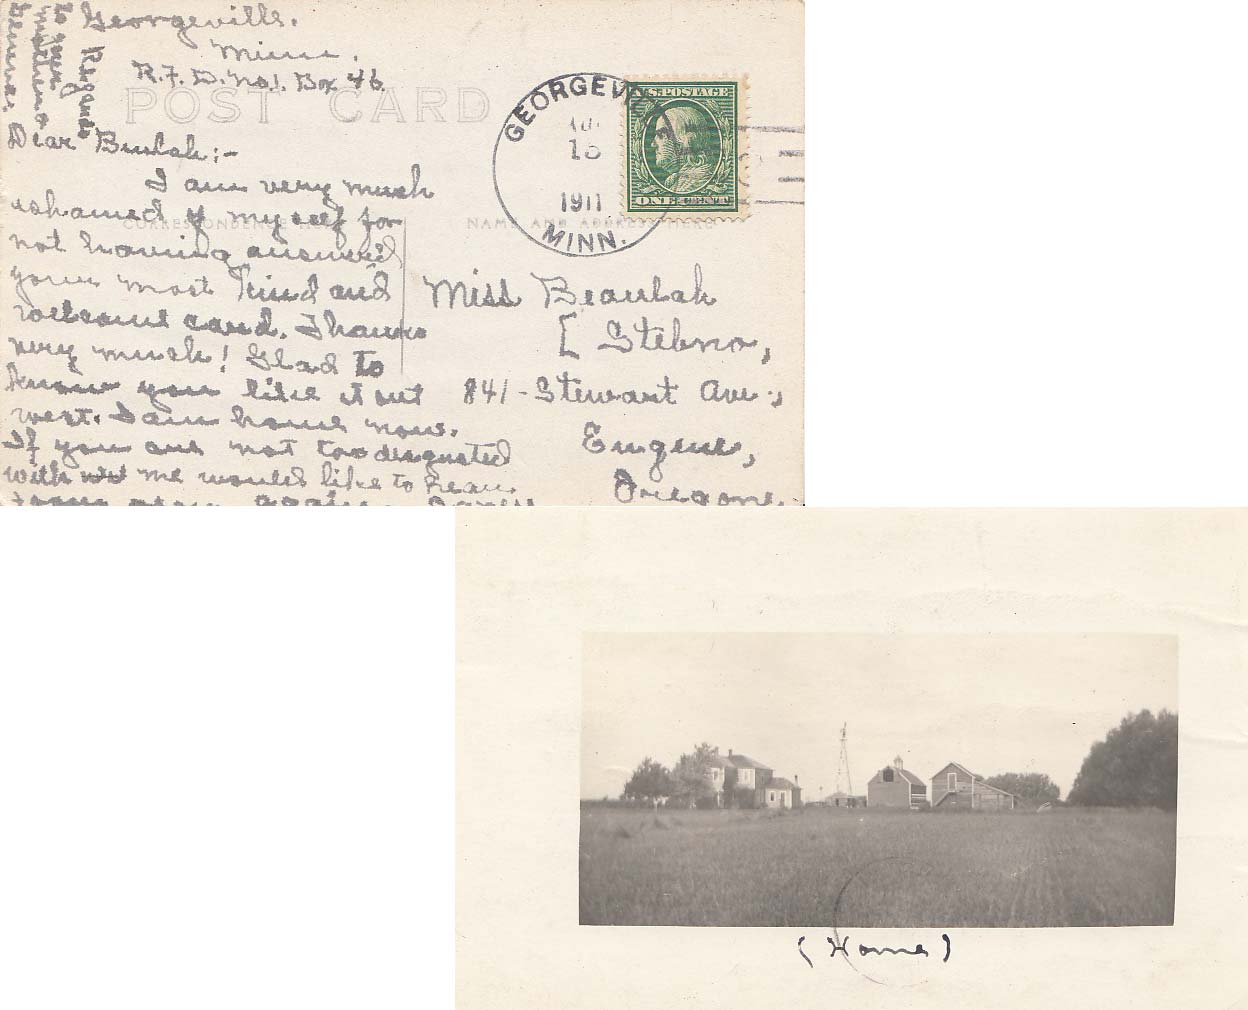 Georgeville.
Minn.
R.F.D. No.1. Box 46.
Regards
to your
mother &
Geneva.
POST CARD
CORRESPONDENCE HERE
NAME AND ADDRESS HERE
Dear Beulah:-
I am very much
ashamed of myself for
not having answered
your most kind and
welcome card. Thanks
very much! Glad to
know you like it out
west. I am home now.
If you are not too disgusted
with me would like to hear
from you again.
GEORGEVILLE
18
1911
MINN.
U.S. POSTAGE
ONE CENT
Miss Beaulah
[ Stebno,
841-Stewart Ave.,
Eugene,
Oregon.
(Home)